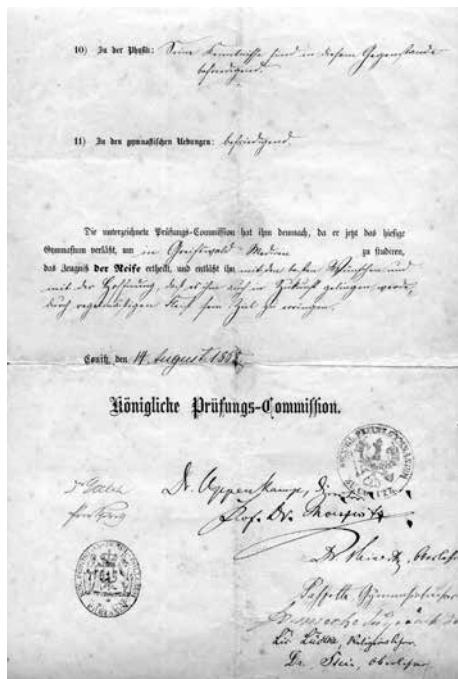 10) In der Physik: Seine Kenntnisse sind in diesem Gegenstande
befriedigend.
11) In den gymnastischen Uebungen: befriedigend.
Die unterzeichnete Prüfungs-Commission hat ihm demnach, da er jetzt das hiesige
Gymnasium verläßt, um in Greifswald Medicin zu studiren,
das Zeugniß der Reife ertheilt, und entläßt ihn mit den besten Wünschen und
mit der Hoffnung, daß es ihm auch in Zukunft gelingen werde,
durch regelmäßigen Fleiß sein Ziel zu erringen.
Conitz, den 14. August 186
Königliche Prüfungs-Commission.
Dr. Goebel
Dr. Uppenkamp, Director
Prof. Dr. Moiszisstz
Dr. Oberlehrer
Gymnasiallehrer
Lic. Lüdtke, Religionslehrer.
Dr. Stein, Oberlehrer